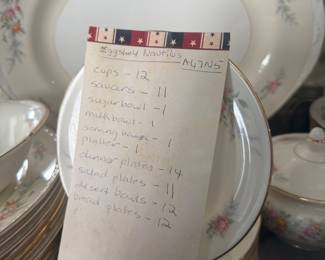 Eggshell Nautilus
A47N5
cups - 12
saucers - 11
sugar bowl - 1
milk bowl - 1
serving - 1
platter - 1
dinner plates - 14
salad plates - 11
desert bowls - 12
bread plates - 12